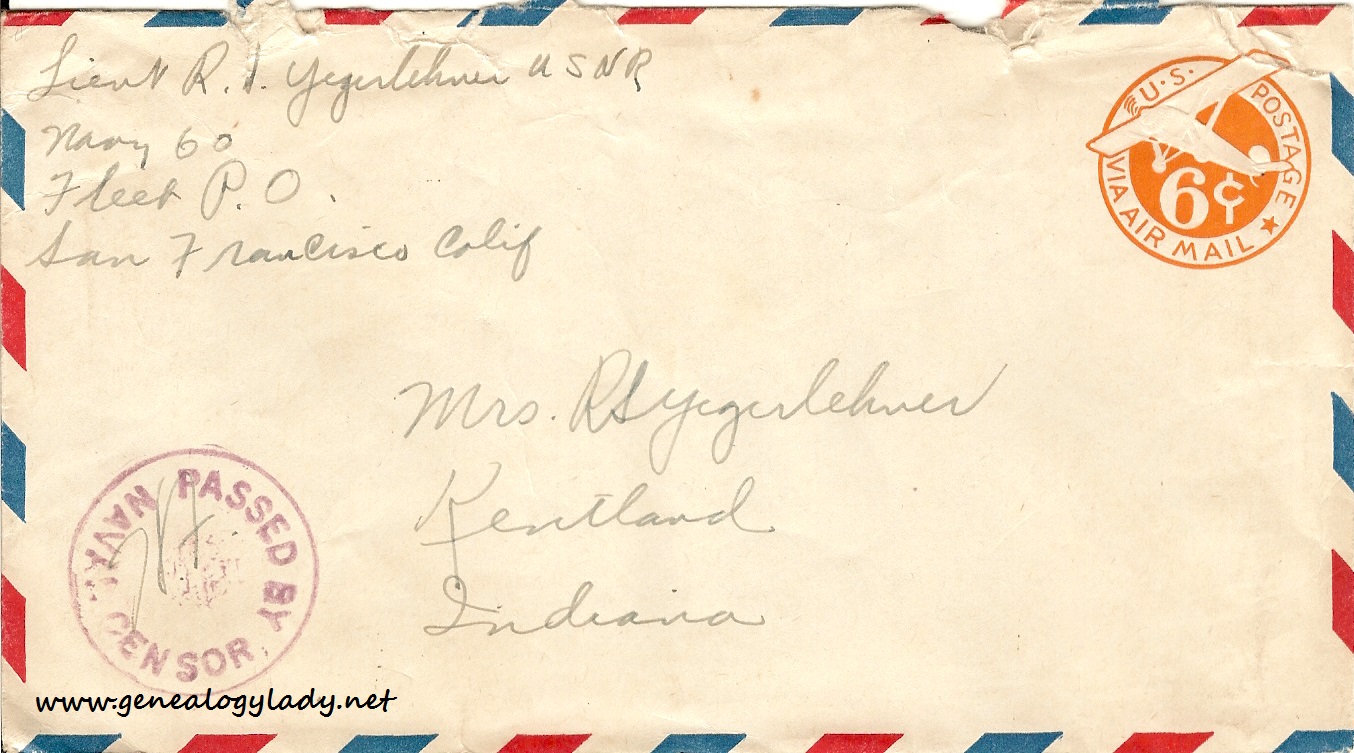 Lieut R. S. Yegerlehner USNR
Navy 60
Fleet P. O.
San Francisco Calif
U.S. POSTAGE
VIA AIR MAIL
6¢
Mrs. RS Yegerlehner
Kentland
Indiana
PASSED BY
NAVAL CENSOR
www.genealogylady.net